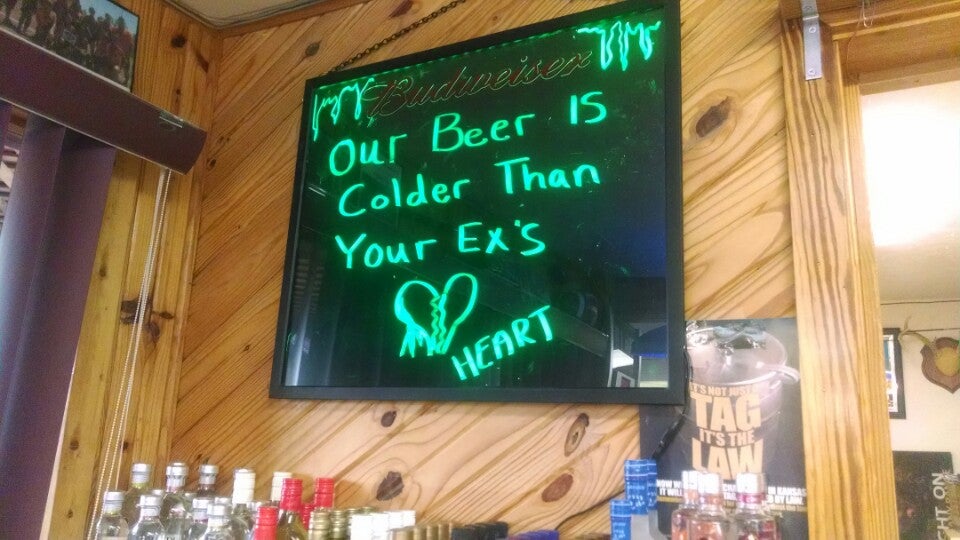 Budweiser
Our Beer Is
Colder Than
Your Ex's
HEART
IT'S NOT JUST A
TAG
IT'S THE
LAW
NOW
IT
KANSAS
BY LAW
HT ON